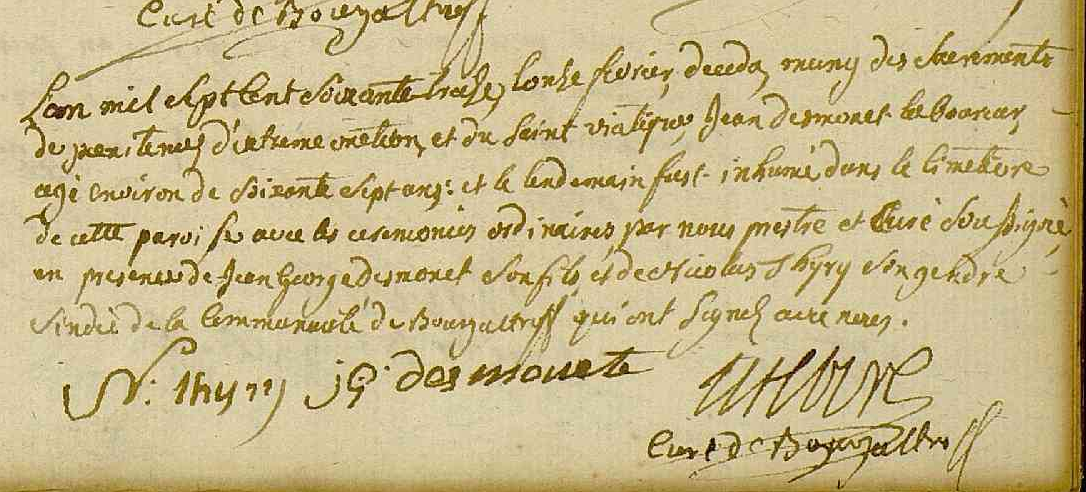 Curé de Bourgaltroff
L'an mil sept cent soixante treize, l'onze fevrier, deceda, muny des sacrements
de penitence, d'extrême onction, et du saint viatique, Jean desmonet
agé environ de soixante sept ans: et le lendemain fust inhumé dans le Cimetiere
de cette paroisse avec les ceremonies ordinaires, par nous prestre et Curé soussigné,
en presence de Jean George desmonet son fils et de Nicolas Thyry son gendre
sindic de la Communauté de Bourgaltroff qui ont signez avec nous.
N: thiry jG: desmonete
Curé de Bourgaltroff